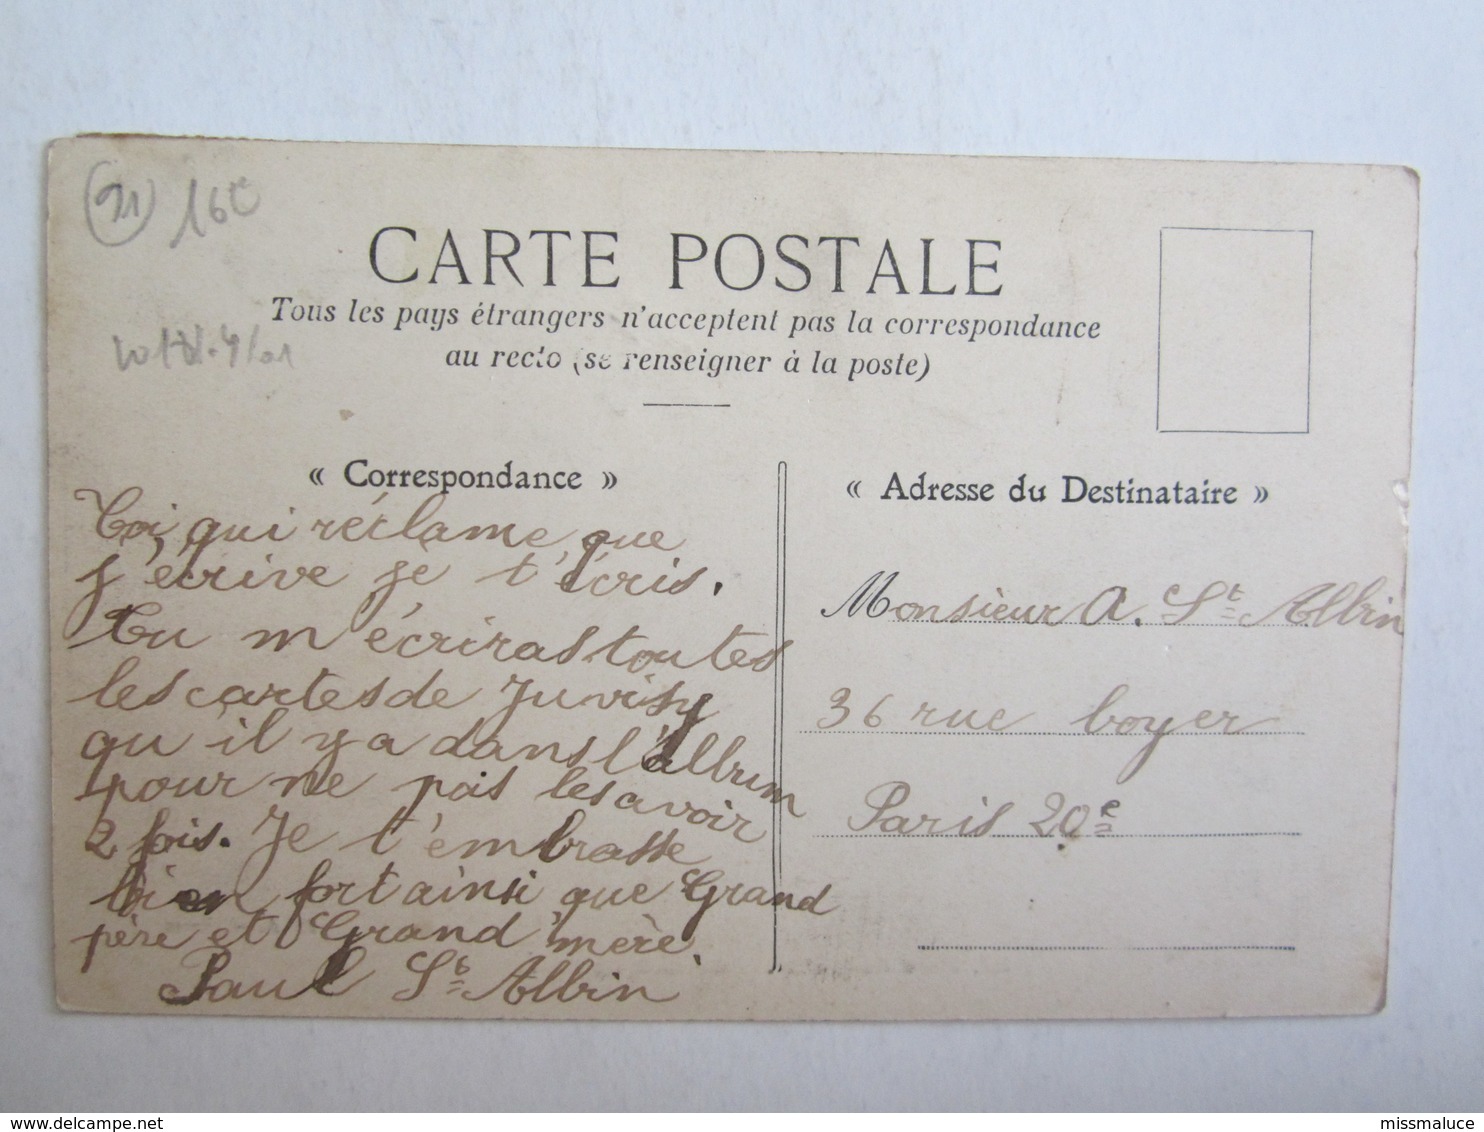 (91) 16€
CARTE POSTALE
Tous les pays étrangers n'acceptent pas la correspondance
au recto (se renseigner à la poste)
« Correspondance »
Toi, qui réclame que
j'écrive je t'écris.
Tu m'écriras toutes
les cartes de Juvisy
qu'il y a dans l'album
pour ne pas les avoir
2 fois. Je t'embrasse
bien fort ainsi que Grand
père et Grand'mère.
Paul St Albin
« Adresse du Destinataire »
Monsieur A. St Albin
36 rue boyer
Paris 20e
missmaluce